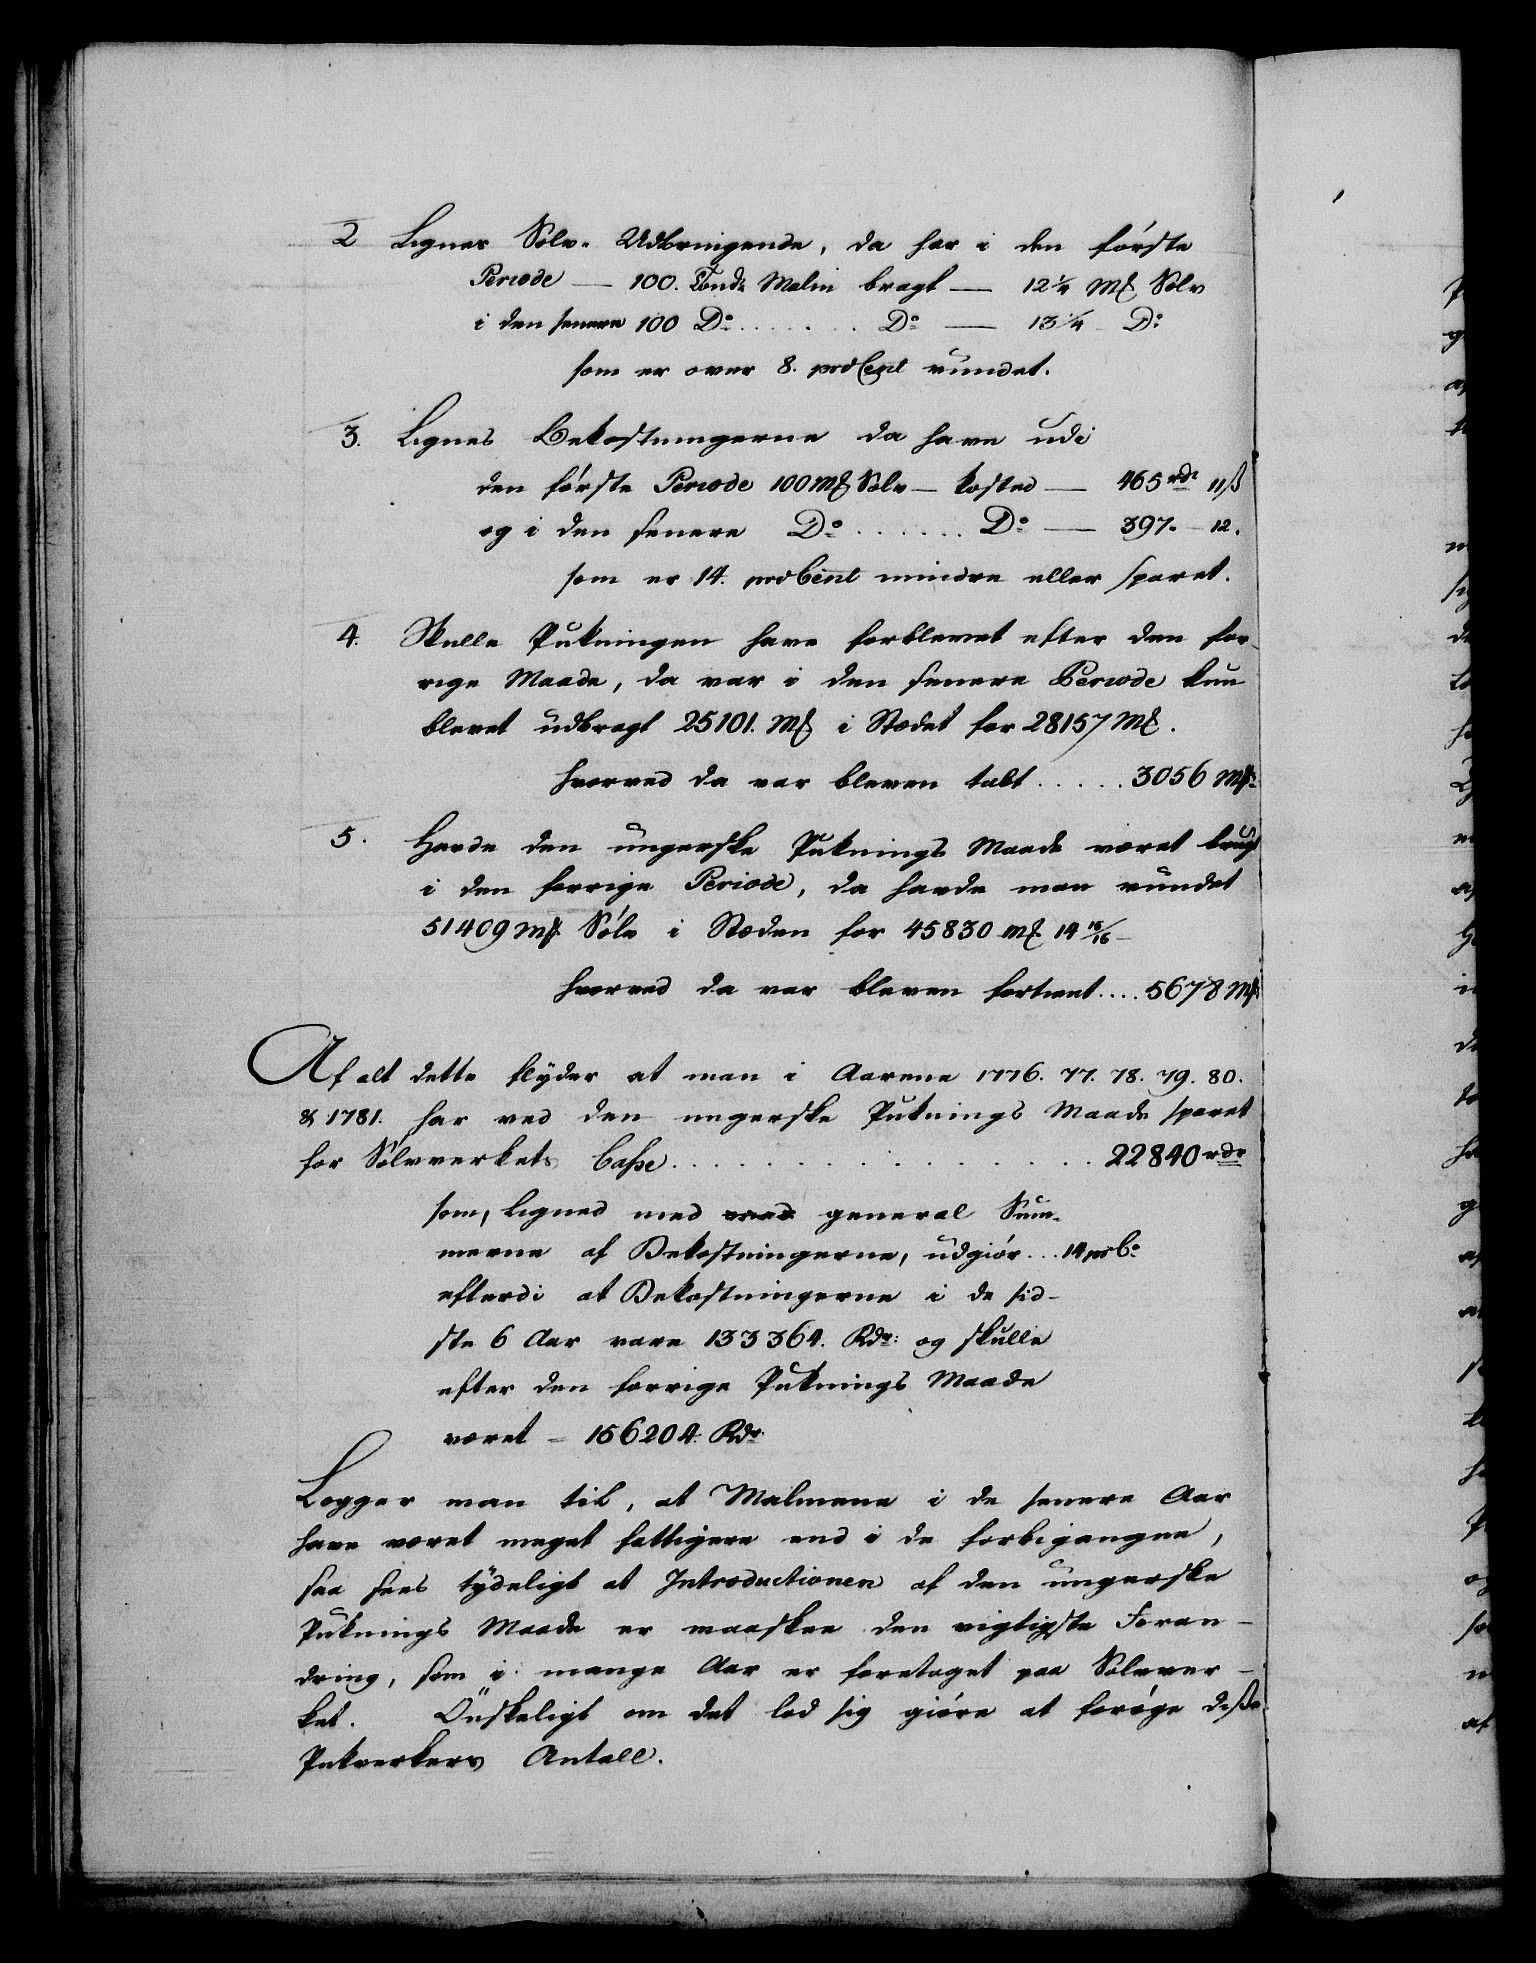 2 Lignes Sølv-Udbringende, da har i den første
Periode — 100. Tond: Malm bragt — 12 1/4 Mk Sølv
i den senere 100 Do . . . . . . . Do — 13 1/4 Do
som er over 8. pro Cent vundet.
3. Lignes Bekostningerne da have udi
den første Periode 100 Mk Sølv — kosted — 465 rdr 11 ß
og i den senere Do . . . . . . Do — 397 - 12.
som er 14. pro Cent mindre eller sparet.
4. Skulle Pukningen have forblevet efter den for-
rige Maade, da var i den senere Periode kun
blevet udbragt 25101. Mk i Stædet for 28157 Mk.
hvorved da var bleven tabt . . . . . 3056 Mk
5. Havde den ungerske Puknings Maade været brugt
i den forrige Periode, da havde man vundet
51409 Mk Sølv i Stæden for 45830 Mk 14 15/16
hvorved da var bleven fortient . . . . 5678 Mk
Af alt dette flyder at man i Aarene 1776. 77. 78. 79. 80.
& 1781. har ved den ungerske Puknings Maade sparet
for Sølvverkets Casse . . . . . . . . . . . . . . . 22840 rdr
som, ligned med general Sum-
merne af Bekostningerne, udgiør . . . 14 prC:
efterdi at Bekostningerne i de sid-
ste 6 Aar vare 133364. Rdr: og skulle
efter den forrige Puknings Maade
været — 156204. Rdr.
Legger man til, at Malmene i de senere Aar
have været meget fattigere end i de forbigangne,
saa sees tydeligt at Introductionen af den ungerske
Puknings Maade er maaskee den vigtigste Foran-
dring, som i mange Aar er foretaget paa Sølvver-
ket. Önskeligt om det lod sig giøre at forøge disse
Pukverkers Antall.